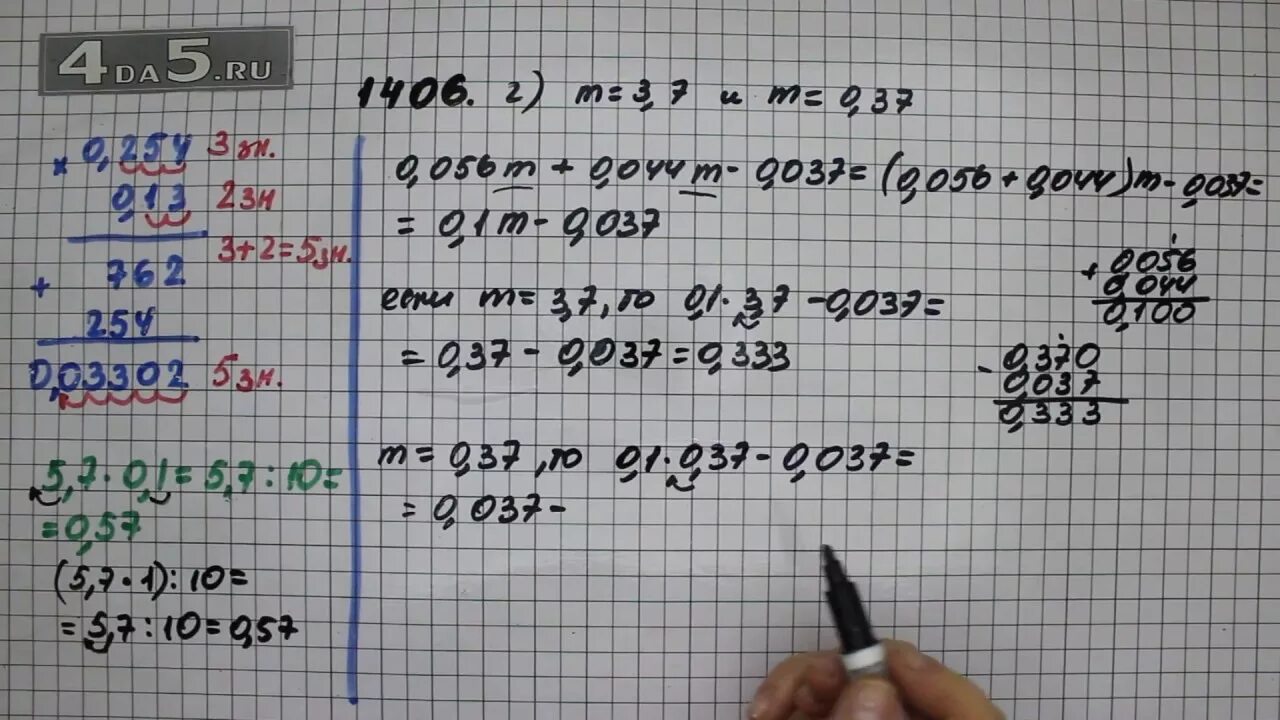 4DA5.RU
1406. г) m=3,7 и m=0,37
0,056m + 0,044m - 0,037 = (0,056 + 0,044)m - 0,037 =
= 0,1m - 0,037
если m = 3,7, то 0,1 · 3,7 - 0,037 =
= 0,37 - 0,037 = 0,333
m = 0,37, то 0,1 · 0,37 - 0,037 =
= 0,037 -
× 0,254 3 зн.
0,13 2 зн
3+2=5 зн.
+ 762
254
0,03302 5 зн.
5,7 · 0,1 = 5,7 : 10 =
= 0,57
(5,7 · 1) : 10 =
= 5,7 : 10 = 0,57
+ 0,056
0,044
0,100
- 0,370
0,037
0,333